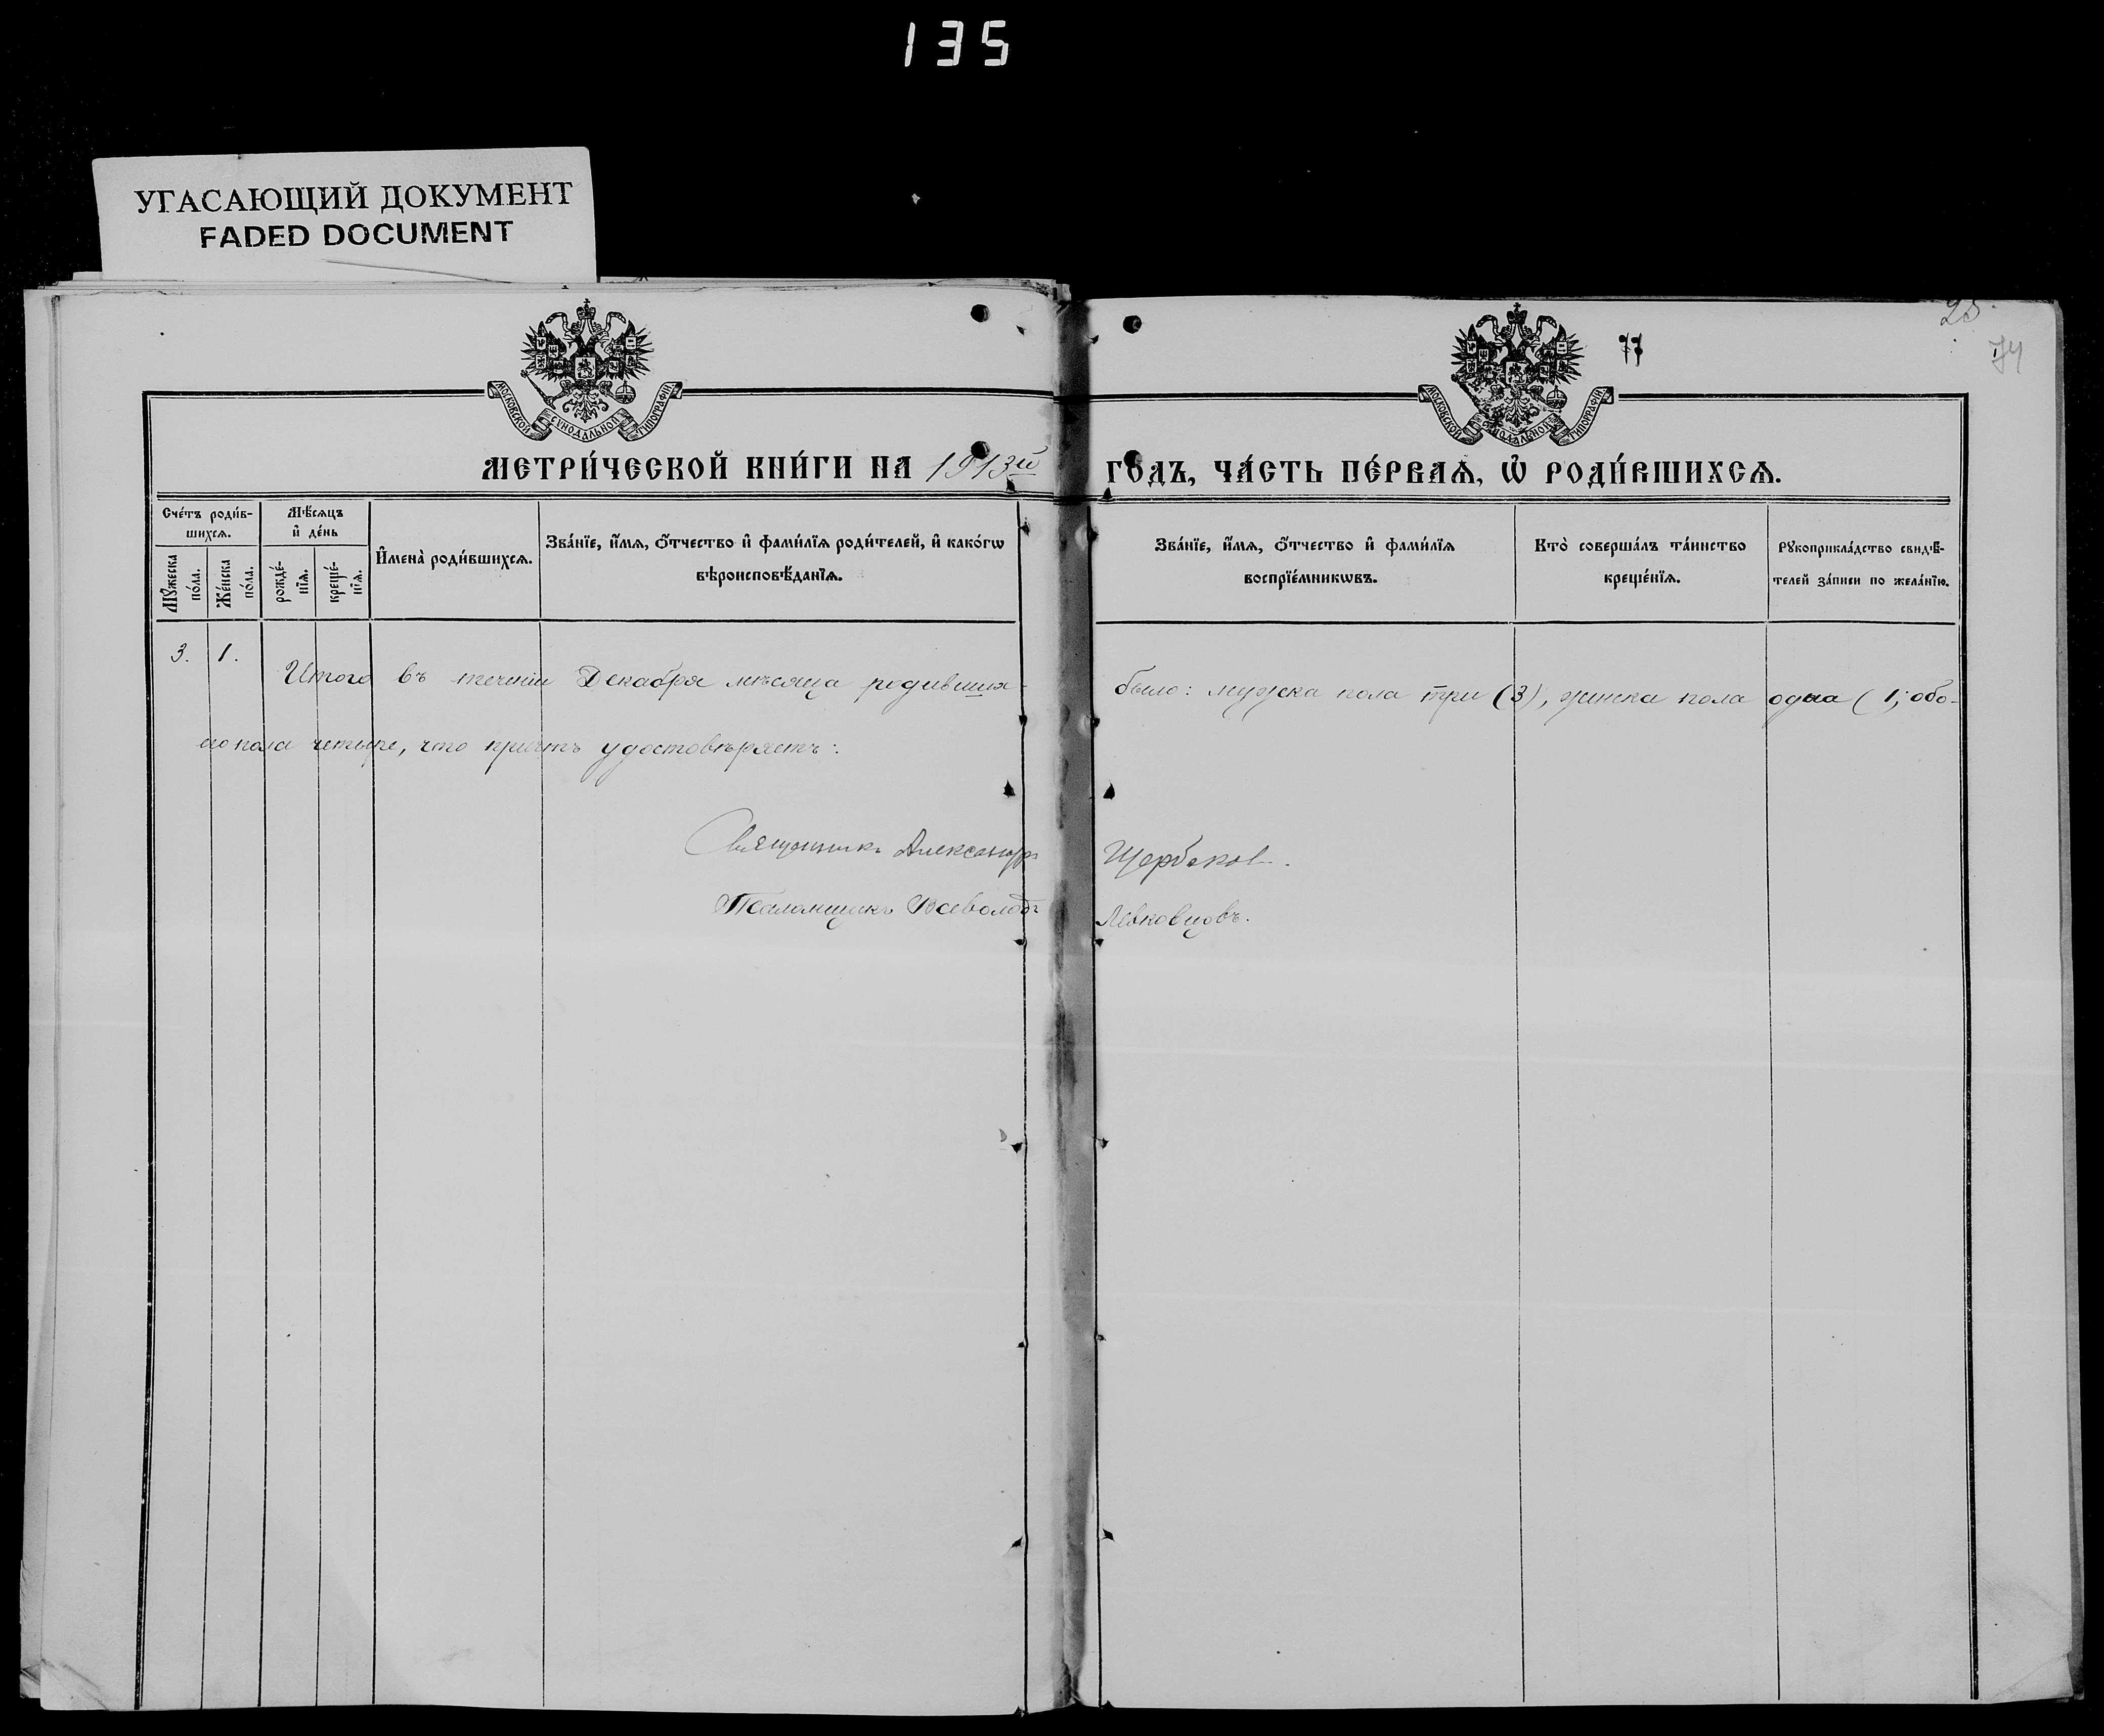 135
УГАСАЮЩИЙ ДОКУМЕНТ
FADED DOCUMENT
25.
77
74
МОСКОВСКОЙ СѴНОДАЛЬНОЙ ТИПОГРАФІИ
МОСКОВСКОЙ СѴНОДАЛЬНОЙ ТИПОГРАФІИ
МЕТРИ́ЧЕСКОЙ КНИ́ГИ НА 1913й ГО́ДЪ, ЧА́СТЬ ПЕ́РВАѦ, Ѽ РОДИ́ВШИХСѦ.
Сче́тъ роди́в-
шихсѧ.
Мѣ́сѧцъ
и҆ де́нь
Мꙋ́жеска
по́ла.
Же́нска
по́ла.
рожде́-
нїѧ.
креще́-
нїѧ.
И҆мена̀ роди́вшихсѧ.
Зва́нїе, и҆́мѧ, ѻ҆́тчество и҆ фами́лїѧ роди́телей, и҆ како́гѡ
вѣроисповѣ́данїѧ.
Зва́нїе, и҆́мѧ, ѻ҆́тчество и҆ фами́лїѧ
воспрїе́мникѡвъ.
Кто̀ соверша́лъ та́инство
креще́нїѧ.
Рꙋкоприкла́дство свидѣ́-
телей за́писи по жела́нїю.
3. 1.
Итого въ теченіи Декабря мѣсяца родивших- было: мужска пола три (3), женска пола одна (1, обо-
его пола четыре, что причтъ удостовѣряетъ:
Священникъ Александръ Щербаковъ.
Псаломщикъ Всеволодъ Левковцовъ.